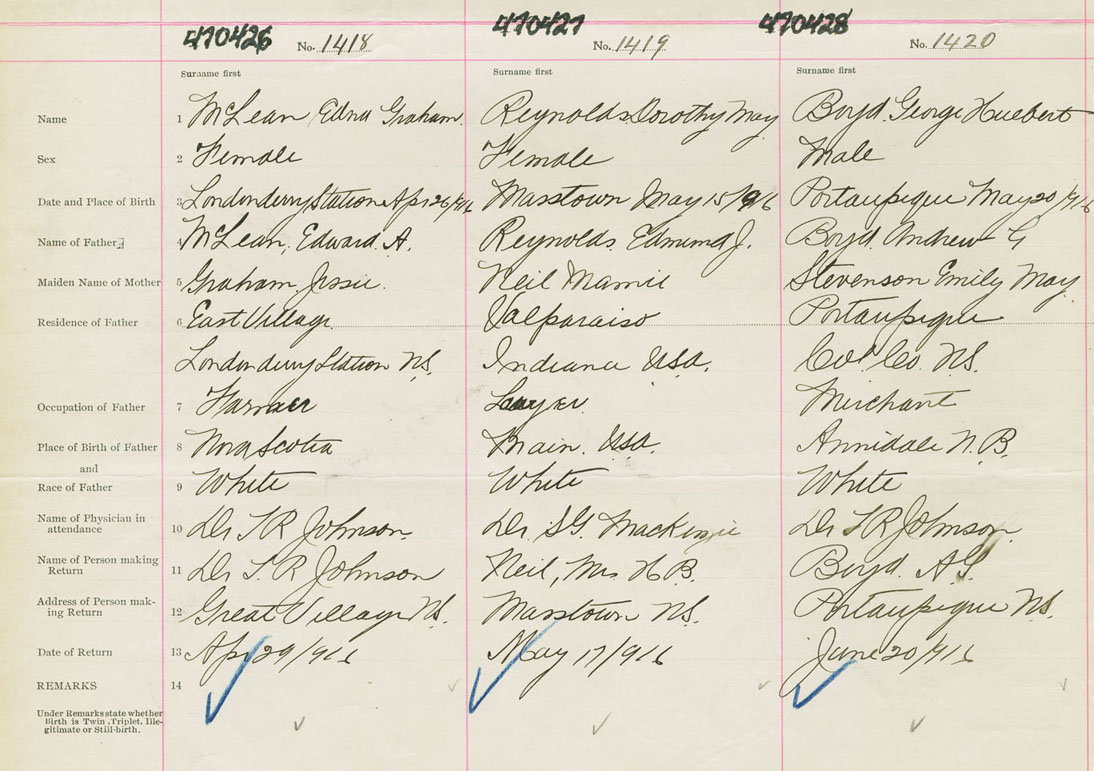 470426 No. 1418 470427 No. 1419 470428 No. 1420
Surname first Surname first Surname first
Name 1 McLean Edna Graham. Reynolds Dorothy May Boyd. George Huebert
Sex 2 Female Female Male
Date and Place of Birth 3 Londonderry Station Apr 26/916 Masstown May 15/916 Portaupique May 20/916
Name of Father 4 McLean, Edward. A. Reynolds. Edmund J. Boyd. Andrew G
Maiden Name of Mother 5 Graham, Jessie. Neil Mamie Stevenson Emily May
Residence of Father 6 East Village. Valparaiso Portaupique
Londonderry Station NS. Indiana USA. Col. Co. NS.
Occupation of Father 7 Farmer Lawyer. Merchant
Place of Birth of Father 8 Nova Scotia Main. USA. Annidale N.B.
and
Race of Father 9 White White White
Name of Physician in
attendance 10 Dr T R Johnson. Dr. SG. MacKenzie Dr T R Johnson.
Name of Person making
Return 11 Dr T. R Johnson Neil, Mrs H.B. Boyd. A.G.
Address of Person mak-
ing Return 12 Great Village NS. Masstown NS. Portaupique NS.
Date of Return 13 Apr 29/916 May 17/916 June 20/916
REMARKS 14
Under Remarks state whether
Birth is Twin, Triplet, Ille-
gitimate or Still-birth.